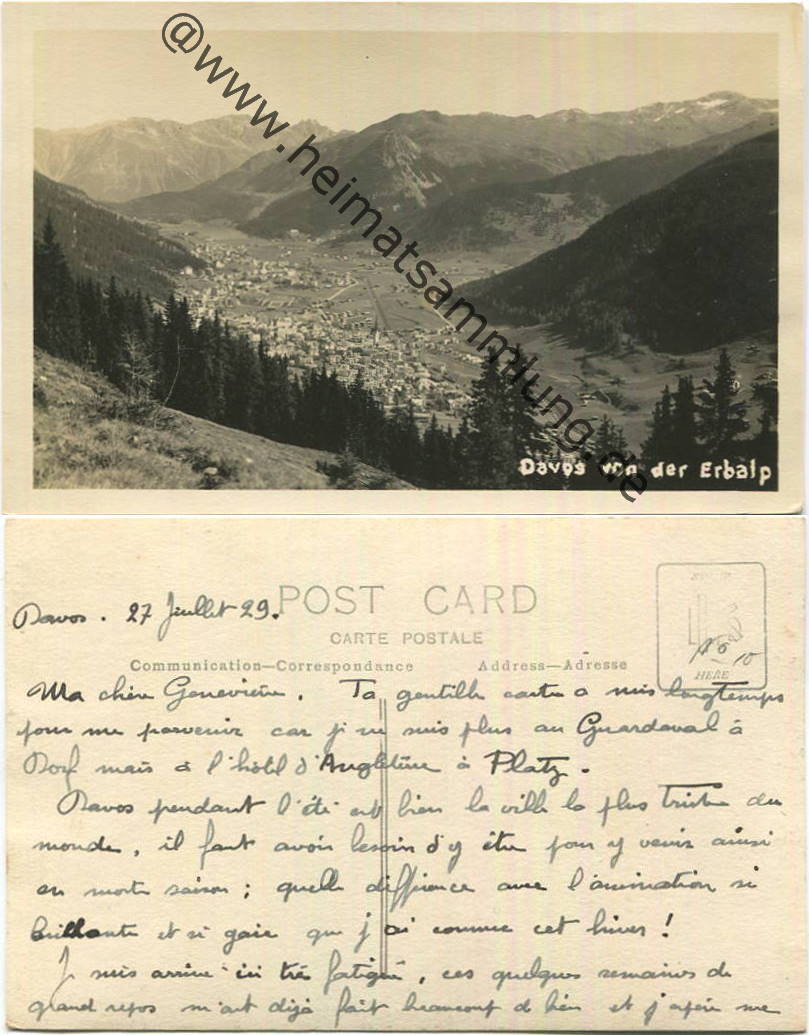 @www.heimatsammlung.de
Davos von der Erbalp
Davos. 27 Juillet 29.
POST CARD
CARTE POSTALE
Communication—Correspondance
Address—Adresse
HERE
Ma chère Geneviève. Ta gentille carte a mis longtemps
pour me parvenir car je ne suis plus au Guardaval à
Dorf mais à l'hôtel d'Angleterre à Platz.
Davos pendant l'été est bien la ville la plus triste du
monde, il faut avoir besoin d'y être pour y venir ainsi
en morte saison ; quelle différence avec l'animation si
brillante et si gaie que j'ai connue cet hiver !
Je suis arrivé ici très fatigué, ces quelques semaines de
grand repos m'ont déjà fait beaucoup de bien et j'espère me